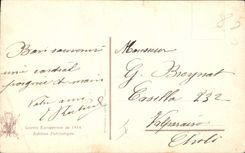 83
Bon souvenir
une cordial
poignée de main
Votre ami
Monsieur
G. Breynat
Casilla 232
Valparaiso
Chili
Guerre Européenne de 1914
Édition Patriotique